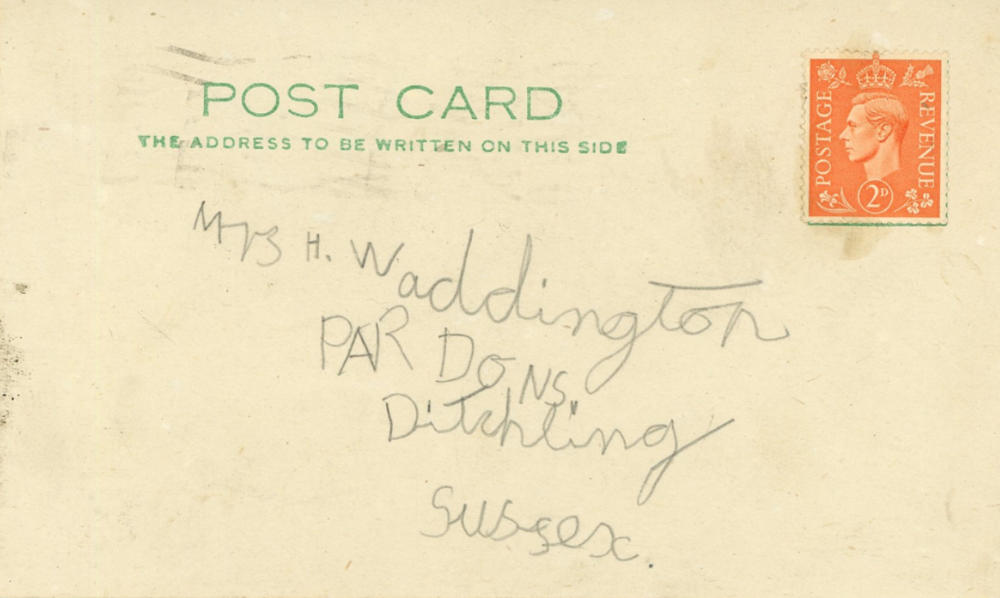 POST CARD
THE ADDRESS TO BE WRITTEN ON THIS SIDE
POSTAGE REVENUE
2D
Mrs H. Waddington
PARDONS
Ditchling
Sussex.